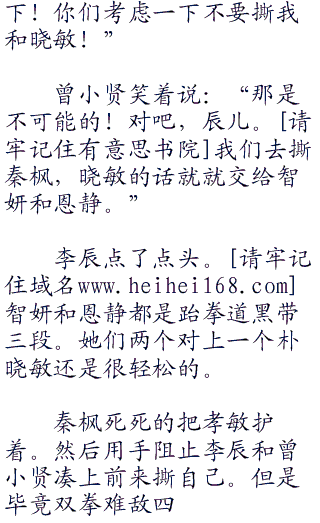 下！你们考虑一下不要撕我
和晓敏！”
曾小贤笑着说：“那是
不可能的！对吧，辰儿。[请
牢记住有意思书院]我们去撕
秦枫，晓敏的话就就交给智
妍和恩静。”
李辰点了点头。[请牢记
住域名www.heihei168.com]
智妍和恩静都是跆拳道黑带
三段。她们两个对上一个朴
晓敏还是很轻松的。
秦枫死死的把孝敏护
着。然后用手阻止李辰和曾
小贤凑上前来撕自己。但是
毕竟双拳难敌四